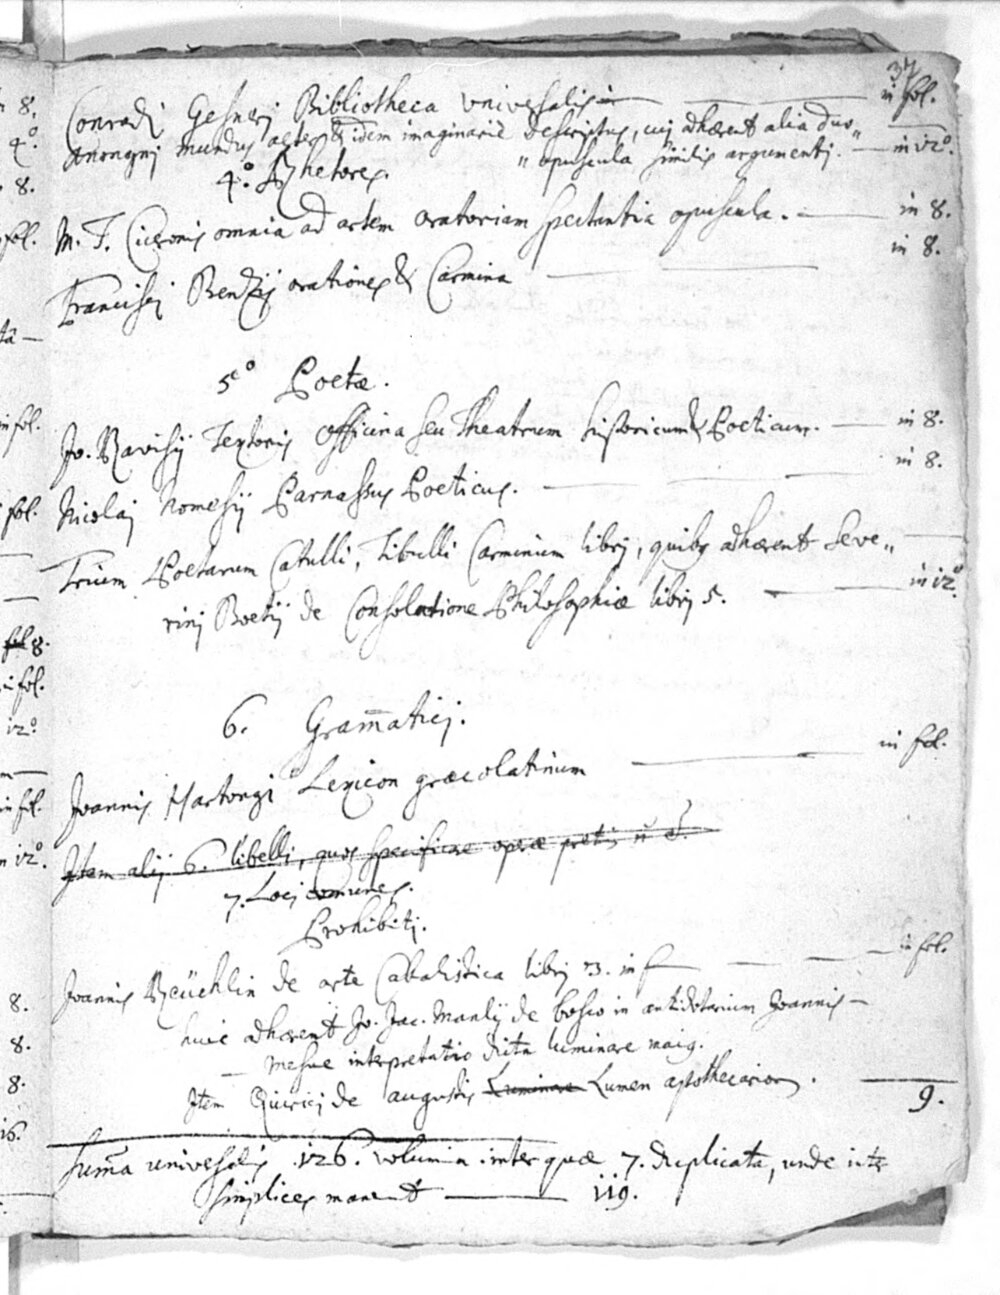 37
Conradi Gesneri Bibliotheca universalis in fol.
Anonymi mundus alter & idem imaginarie descriptus, cui adhærent alia duo„
„ opuscula similis argumenti. — in 12º.
4.º Rhetores.
M. T. Ciceronis omnia ad artem oratoriam spectantia opuscula. — in 8.
Francisci Benzij orationes & Carmina — in 8.
5.º Poetæ.
Jo. Ravisij Textoris officina seu Theatrum historicum & Poeticum. — in 8.
Nicolai Nomesij Parnassus Poeticus. — in 8.
Trium Poetarum Catulli, Tibulli Carminum libri, quibus adhærent Seve„
rini Boetij de Consolatione Philosophiæ libri 5. — in 12º.
6. Gram̄atici.
Joannis Hartongi Lexicon græcolatinum — in fol.
Item alij 6. libelli, quos specificare operæ pretiū ñ ē
7. Loci com̄unes.
Prohibiti.
Joannis Reüchlin de arte Cabalistica libri 3. in f — in fol.
huic adhærent Jo. Jac. Manlij de bosco in antidotarium Joannis —
— Mesue interpretatio dicta luminare maig.
Item Quirici de augustis Luminare Lumen apothecariorum.
9.
Sum̄a universalis 126. volumina inter quæ 7. duplicata, unde inter
simplices manent — 119.
8.
4º.
8.
fol.
tâ —
in fol.
fol.
fol 8.
in fol.
12º.
in fol.
in 12º.
8.
8.
8.
16.